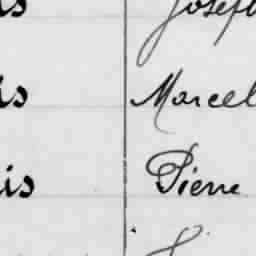 is Joseph
is Marcel
is Pierre